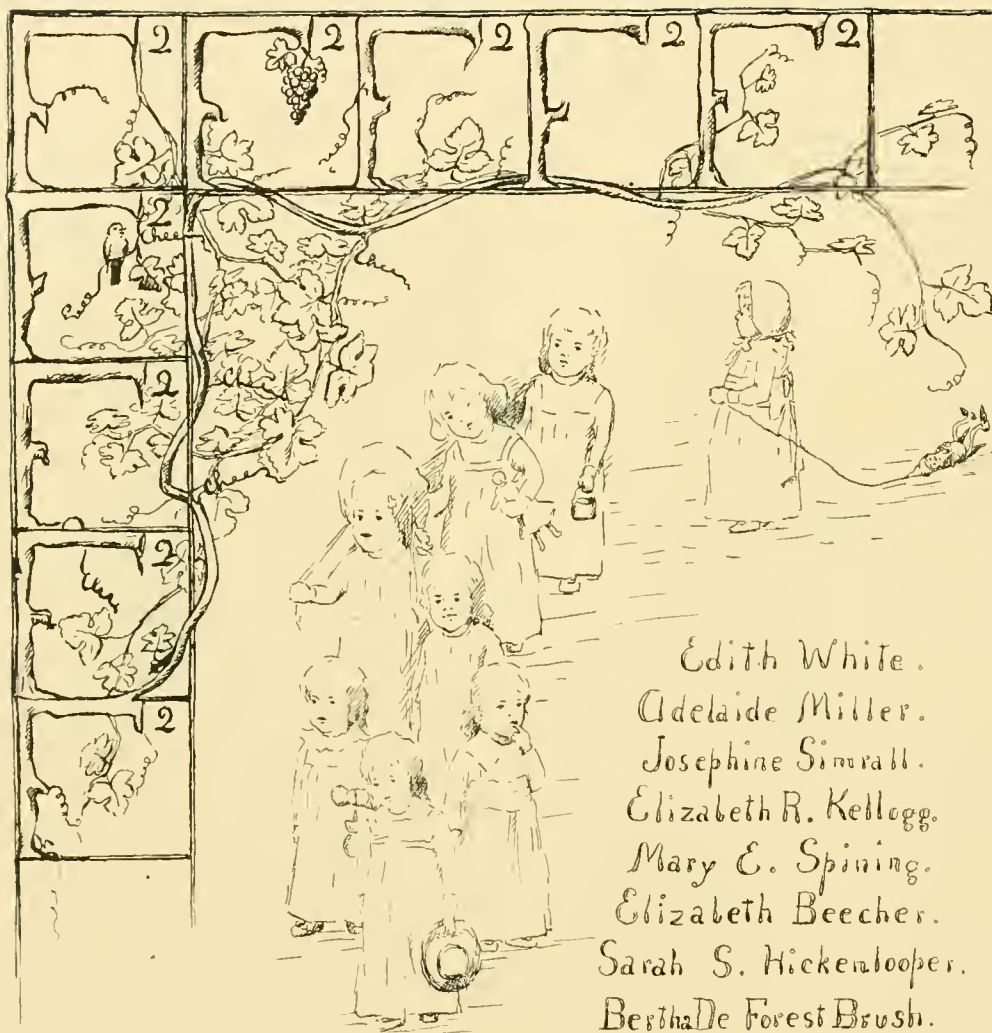 2 2 2 2 2
2
Chee
Chee
2
Chee
2
2
Edith White.
Adelaide Miller.
Josephine Simrall.
Elizabeth R. Kellogg.
Mary E. Spining.
Elizabeth Beecher.
Sarah S. Hickenlooper.
Bertha De Forest Brush.